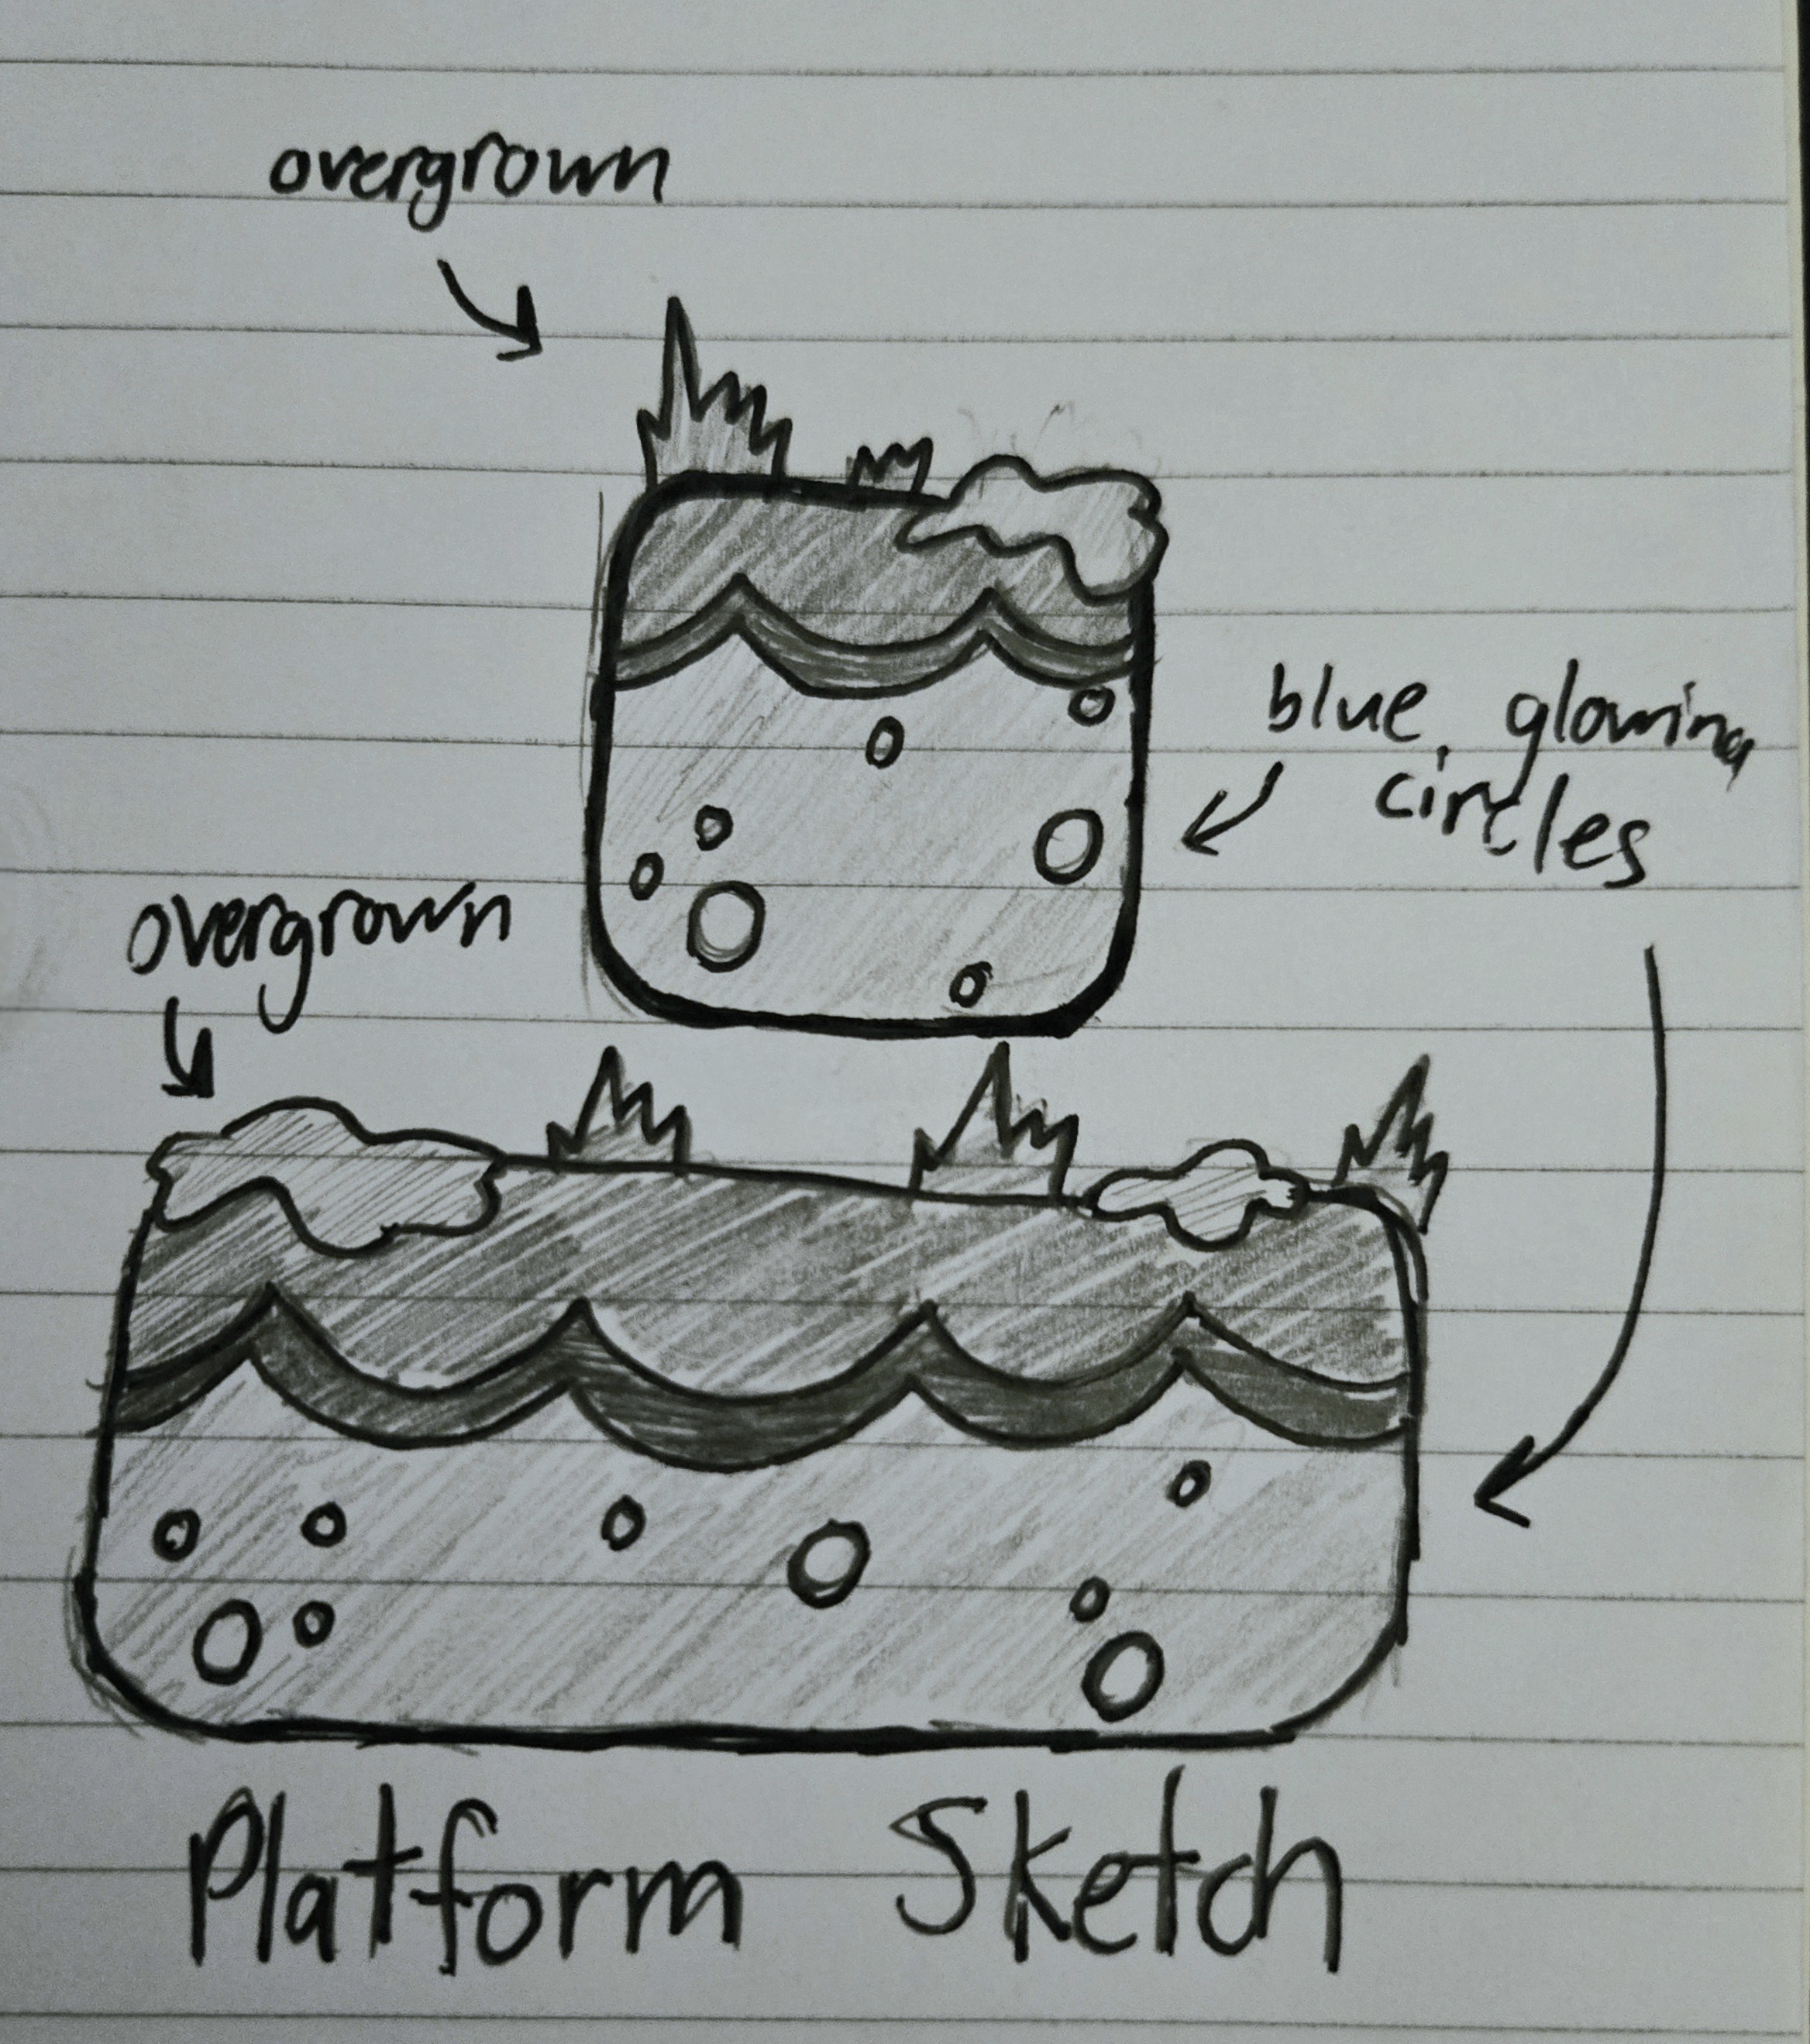 overgrown
blue glowing
circles
overgrown
Platform Sketch